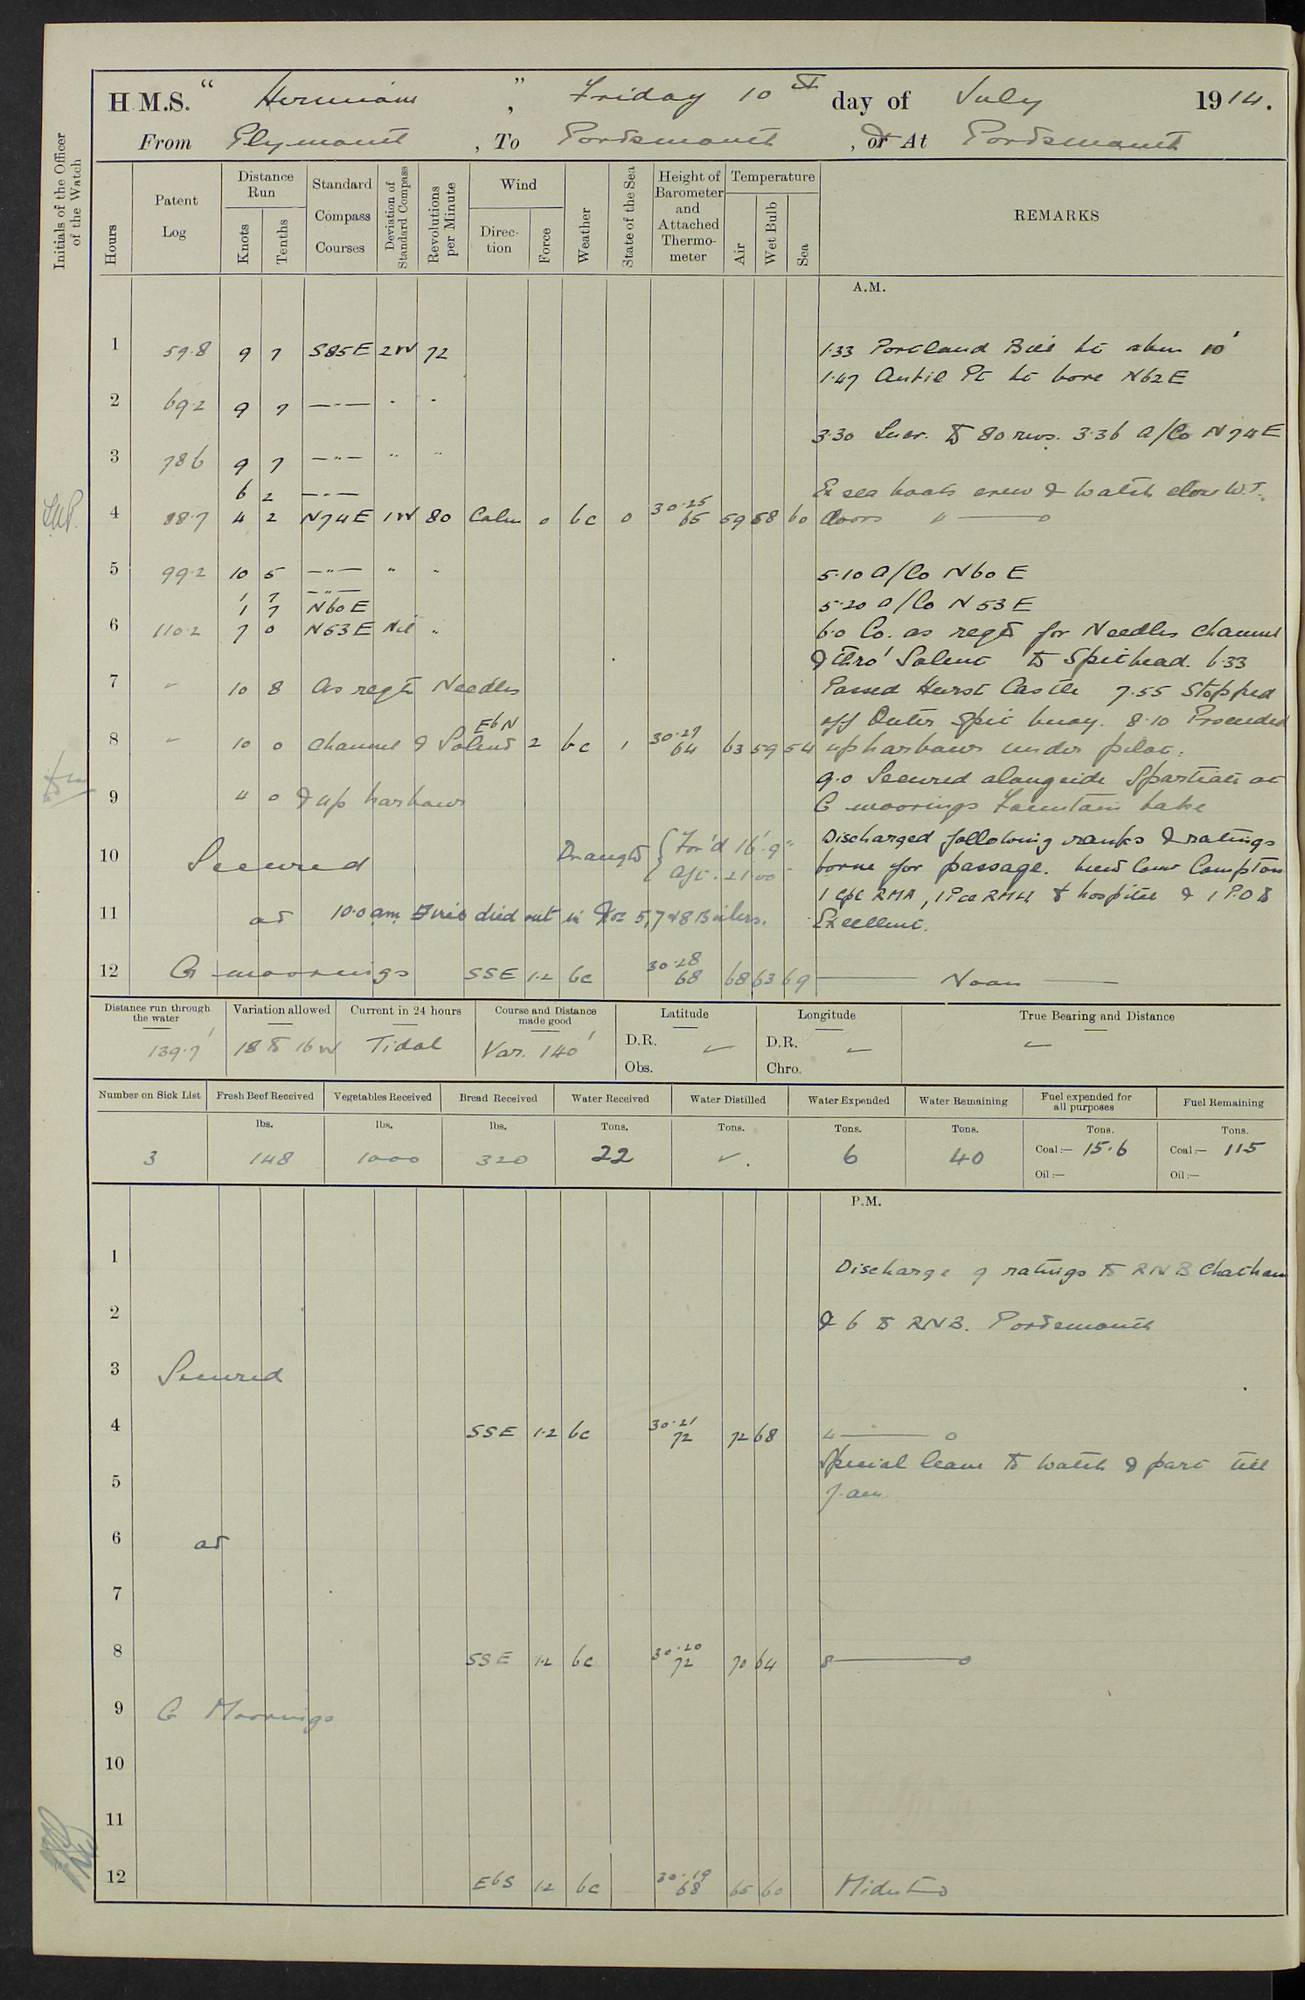 H.M.S. " Hermione ", Friday 10th day of July 1914.
From Plymouth, To Portsmouth, or At Portsmouth
Initials of the Officer of the Watch
Hours
Patent Log
Distance Run
Knots
Tenths
Standard Compass Courses
Deviation of Standard Compass
Revolutions per Minute
Wind
Direction
Force
Weather
State of the Sea
Height of Barometer and Attached Thermometer
Temperature
Air
Wet Bulb
Sea
REMARKS
A.M.
1 59.8 9 7 S85E 2W 72 1.33 Portland Bill Lt abm 10'
1.47 Anvil Pt Lt bore N62E
2 69.2 9 7 —"— " "
3.30 Incr. to 80 revs. 3.36 A/Co N74E
3 78.6 9 7 —"— " "
6 2 —"— Ex sea boats crew & watch close W.T.
4 88.7 4 2 N74E 1W 80 Calm 0 bc 0 30.25 65 59 58 60 doors 4 —— 0
5 99.2 10 5 —"— " " 5.10 A/Co N60E
1 7 —"—
1 7 N60E 5.20 A/Co N53E
6 110.2 7 0 N53E Nil " 6.0 Co. as reqd for Needles Channel
& thro' Solent to Spithead. 6.33
7 10 8 As reqd Needles Passed Hurst Castle 7.55 Stopped
off Outer Spit buoy. 8.10 Proceeded
8 10 0 Channel & Solent EbN 2 bc 1 30.27 64 63 59 54 up harbour under pilot.
9.0 Secured alongside Spartiate at
9 4 0 & up harbour C moorings Fountain Lake
10 Secured Draught { For'd 16'.9" Aft. 21.00 Discharged following ranks & ratings
borne for passage. Compton
1 Cpl RMA, 1 Pte RMLI to hospital & 1 P.O to
11 at 10.0 am Fires died out in Nos 5, 7 & 8 Boilers. Excellent.
12 C moorings SSE 1.2 bc 30.28 68 68 63 69 —— Noon ——
Distance run through the water
139.7'
Variation allowed
18 to 16 W
Current in 24 hours
Tidal
Course and Distance made good
Var. 140'
Latitude
D.R.
Obs.
Longitude
D.R.
Chro.
True Bearing and Distance
Number on Sick List
3
Fresh Beef Received
lbs.
148
Vegetables Received
lbs.
1000
Bread Received
lbs.
320
Water Received
Tons.
22
Water Distilled
Tons.
Water Expended
Tons.
6
Water Remaining
Tons.
40
Fuel expended for all purposes
Tons.
Coal:— 15.6
Oil:—
Fuel Remaining
Tons.
Coal:— 115
Oil:—
P.M.
1 Discharge 9 ratings to RNB Chatham
2 & 6 to RNB. Portsmouth
3 Secured
4 SSE 1.2 bc 30.21 72 72 68 4 —— 0
Special leave to watch & part till
5 7. am
6 at
7
8 SSE 1.2 bc 30.20 72 70 64 8 —— 0
9 C Moorings
10
11
12 EbS 1.2 bc 30.19 68 65 60 Midnt